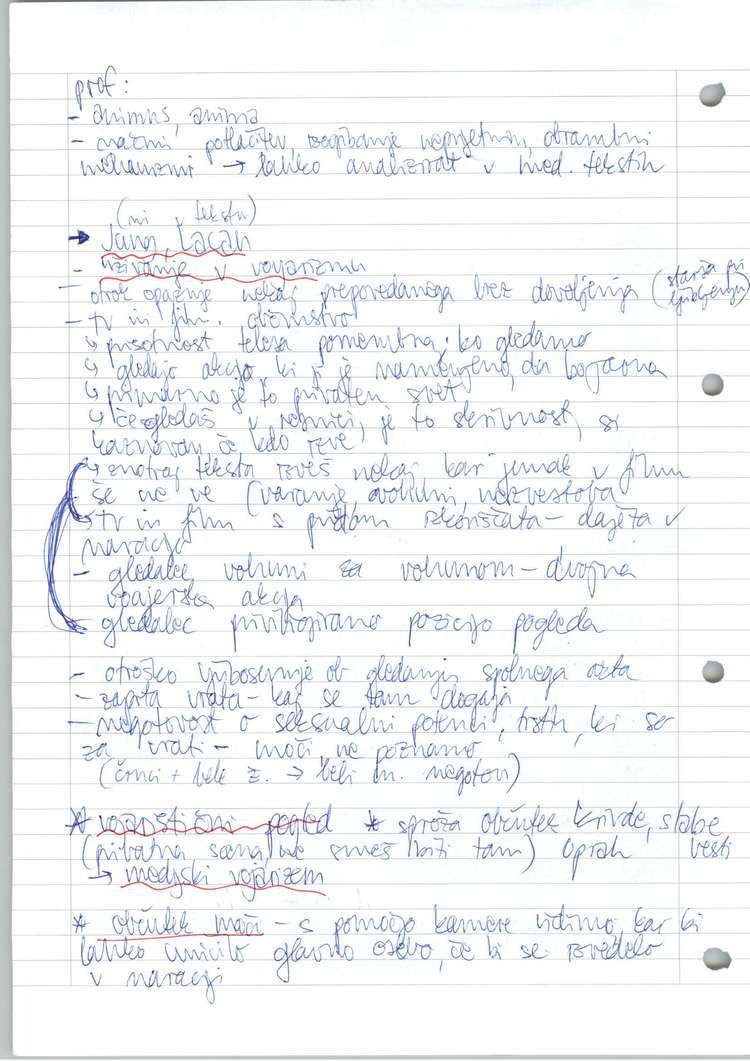 prof:
- animus, anima
- načini potlačitev, izogibanje neprijetnim, obrambni
mehanizmi → lahko analizirat v med. tekstih
(mi v tekstu)
→ Jung, Lacan
- uživanje v voyarizmu
- otrok opazuje nekaj prepovedanega brez dovoljenja (starša pri
ljubljenju)
- tv in film. občinstvo
↳ prisotnost telesa pomembna, ko gledamo
↳ gledajo akcijo, ki ji je namenjeno, da bo javna
↳ primarno je to privaten svet
↳ če gledaš v resnici, je to skrivnost, si
kaznovan, če kdo izve
↳ znotraj teksta izveš nekaj kar junak v filmu
še ne ve (varanje, nezvestoba
↳ tv in film s pridom izkoriščata - dajeta v
naracijo
- gledalec vohuni za vohunom - dvojna
voajerska akcija
- gledalec priviligirano pozicijo pogleda
- otroško ljubosumje ob gledanju spolnega akta
- zaprta vrata - kaj se tam dogaja
- negotovost o seksualni potenci, tistih, ki so
za vrati - moči, ne poznamo
(črnci + bele ž. → beli m. negotovi)
* vojaristični pogled * sproža občutek krivde, slabe
(privatna scena, ne smeš biti tam) Oprah vesti
↳ medijski vojarizem
* občutek moči - s pomočjo kamere vidimo, kar bi
lahko uničilo glavno osebo, če bi se izvedelo
v naraciji